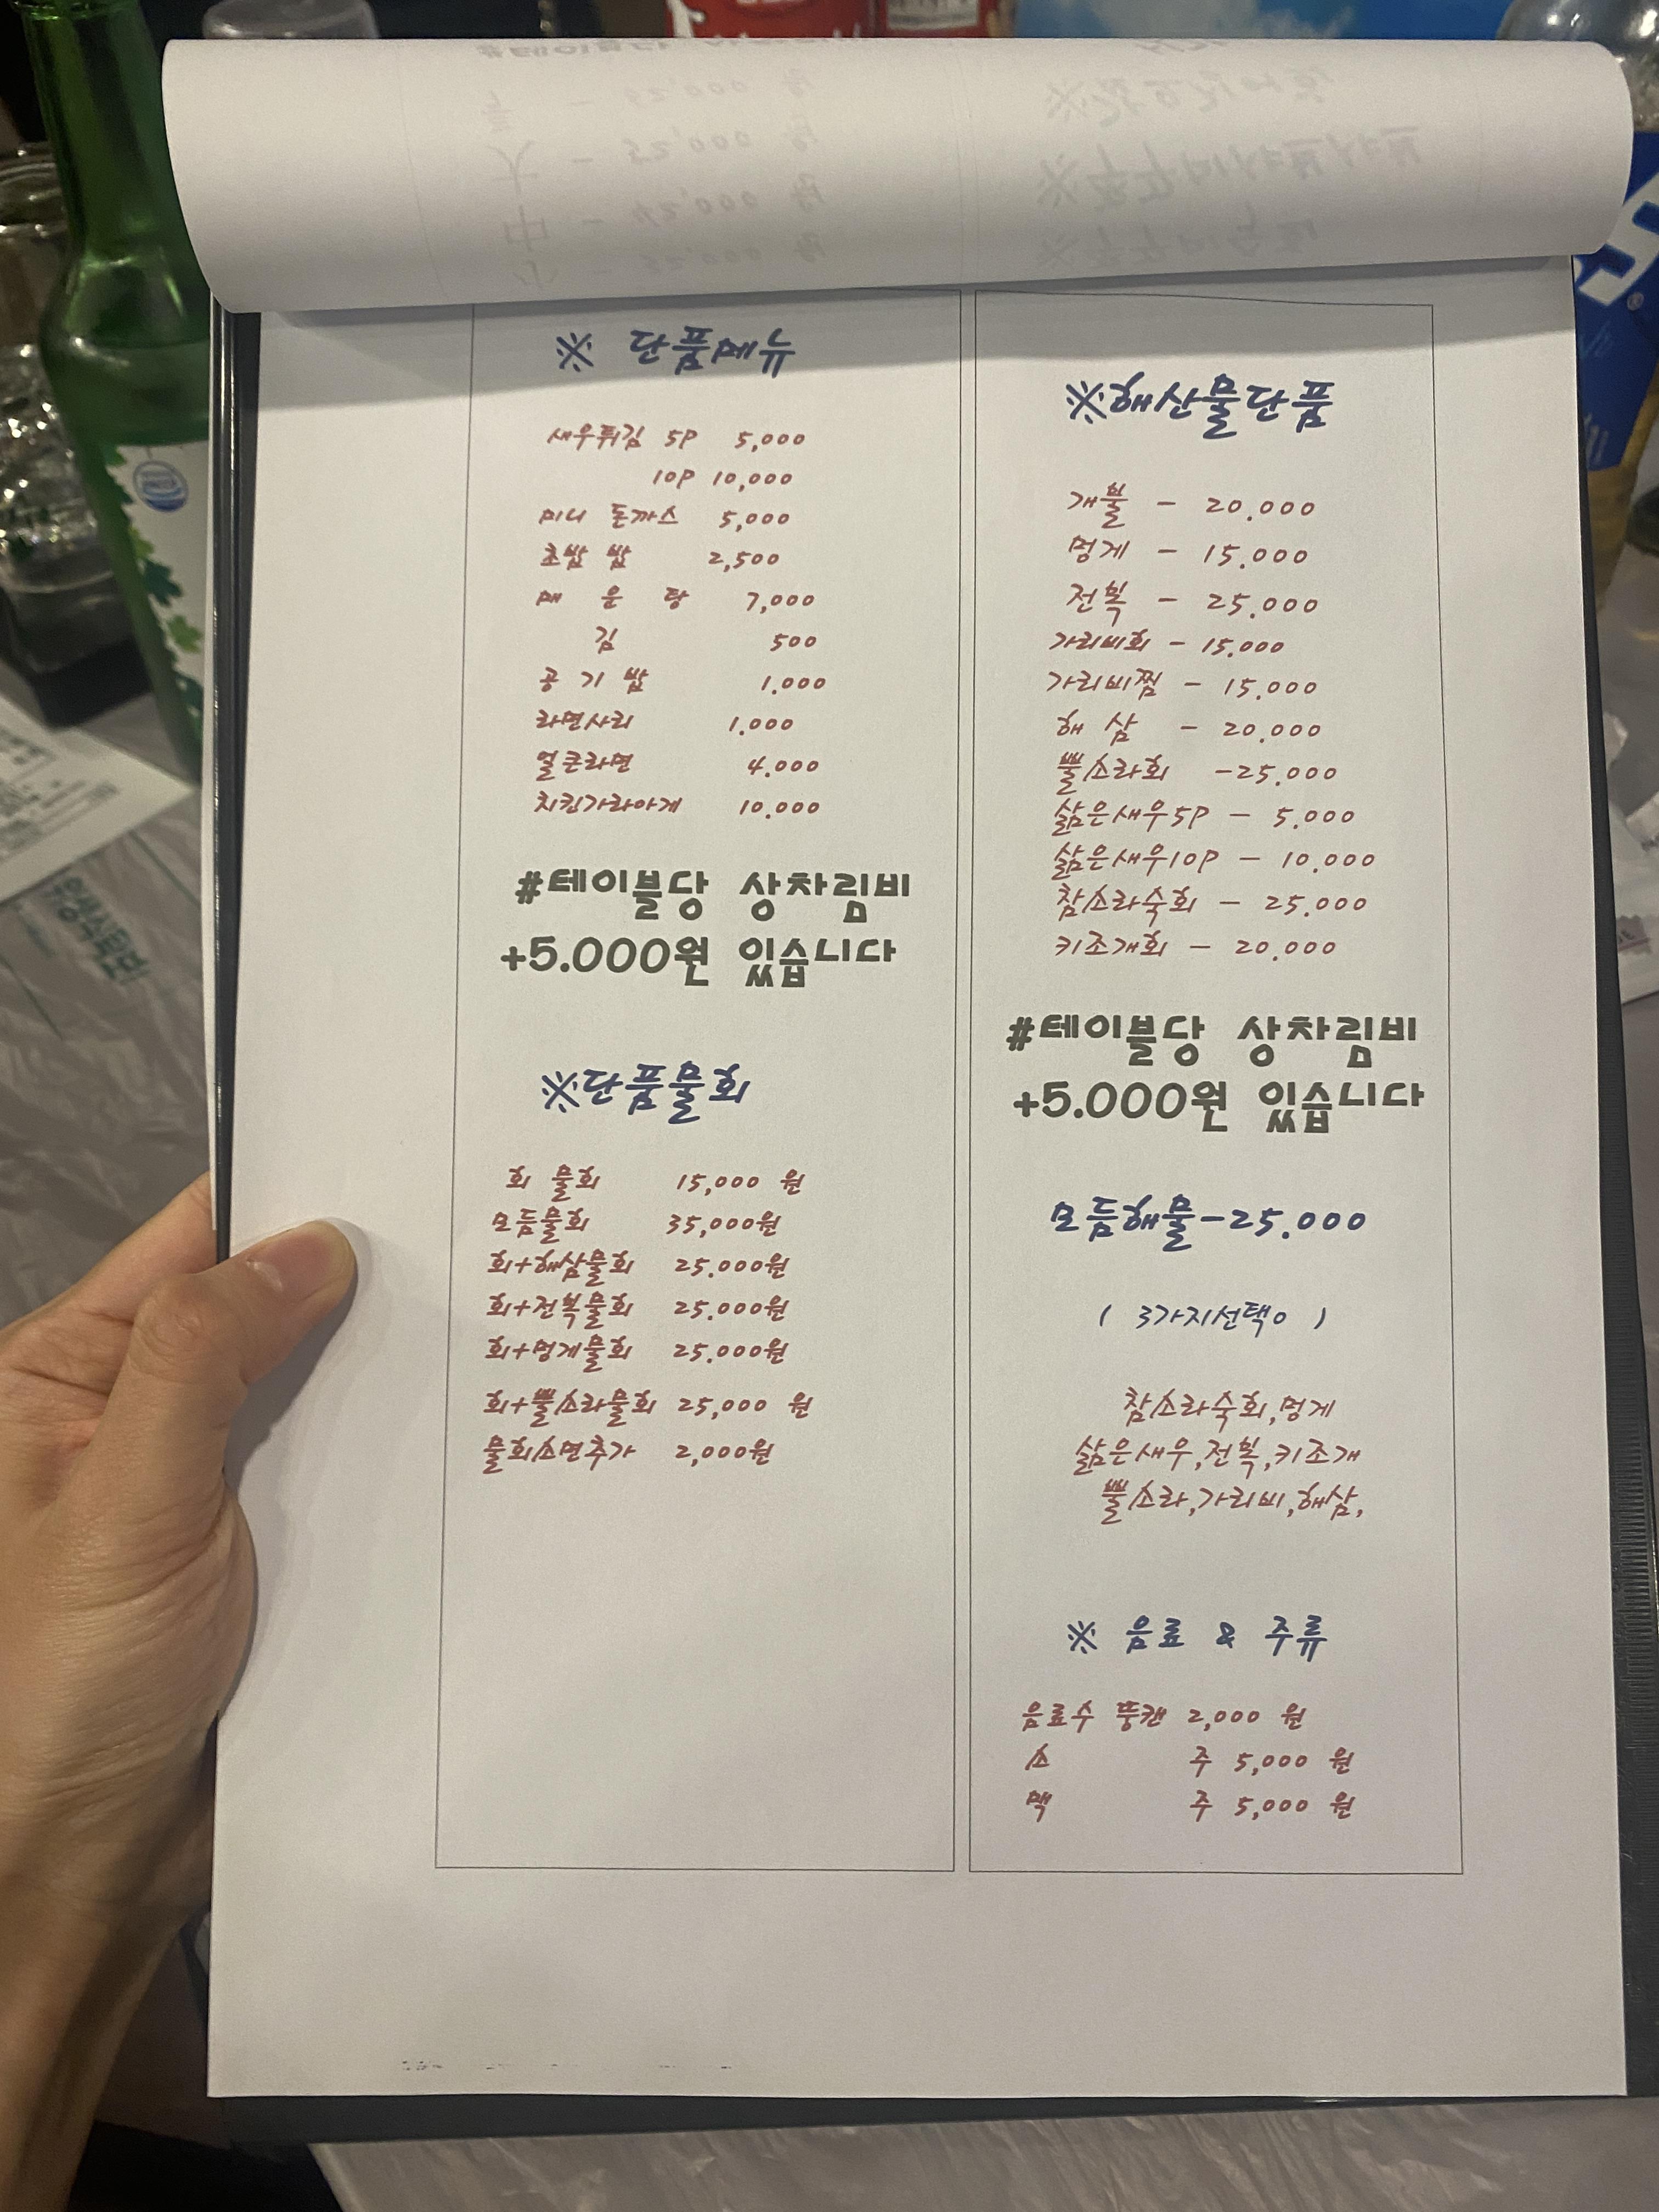 ※ 단품메뉴
새우튀김 5P 5,000
10P 10,000
미니 돈까스 5,000
초밥 밥 2,500
매 운 탕 7,000
김 500
공 기 밥 1.000
라면사리 1.000
얼큰라면 4.000
치킨가라아게 10.000
#테이블당 상차림비
+5.000원 있습니다
※단품물회
회 물회 15,000 원
모듬물회 35,000원
회+해삼물회 25.000원
회+전복물회 25.000원
회+멍게물회 25.000원
회+뿔소라물회 25,000 원
물회소면추가 2,000원
※해산물단품
개불 - 20.000
멍게 - 15.000
전복 - 25.000
가리비회 - 15.000
가리비찜 - 15.000
해 삼 - 20.000
뿔소라회 -25.000
삶은새우5P - 5.000
삶은새우10P - 10.000
참소라숙회 - 25.000
키조개회 - 20.000
#테이블당 상차림비
+5.000원 있습니다
모듬해물-25.000
( 3가지선택o )
참소라숙회,멍게
삶은새우,전복,키조개
뿔소라,가리비,해삼,
※ 음료 & 주류
음료수 뚱캔 2,000 원
소 주 5,000 원
맥 주 5,000 원